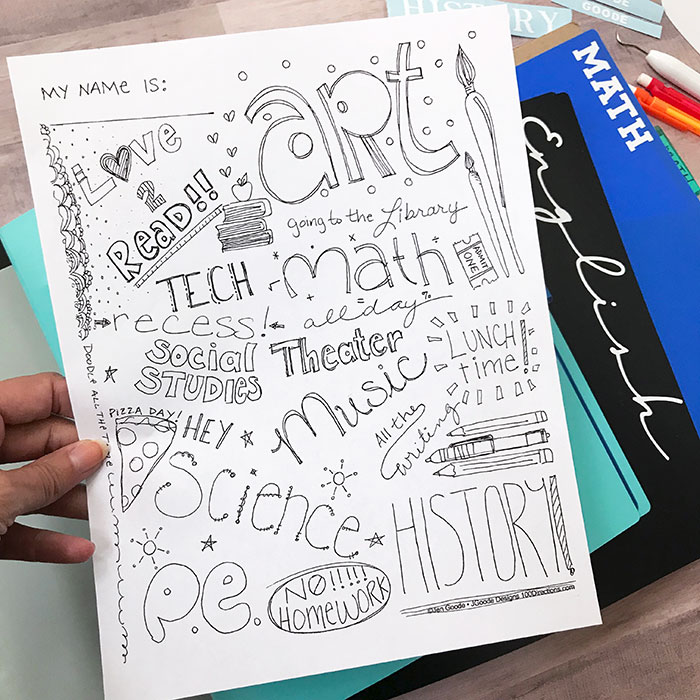 MY NAME IS:
I Love
2
READ!!
art
going to the Library
TECH
math
ADMIT
ONE
recess!
all day
Social
STUDIES
Theater
LUNCH
time!
Music
DOODLE ALL THE TIME
PIZZA DAY!
HEY
All the
writing
Science
HISTORY!
P.E.
NO!!!!!
HOMEWORK
©Jen Goode • JGoode Designs 100Directions.com
HISTORY
GOODE
MATH
English
MATH